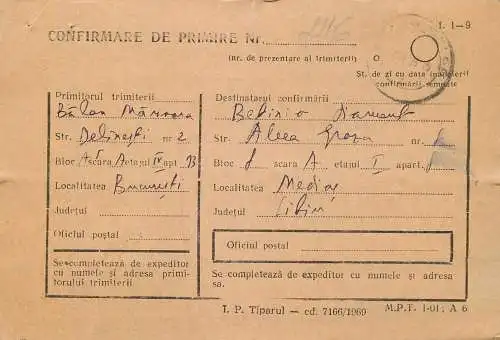 I. 1-9
CONFIRMARE DE PRIMIRE Nr.
(nr. de prezentare al trimiterii)
St. de zi cu data înapoierii
confirmării semnate
Primitorul trimiterii
Bălan
Str. nr 2
Bloc A5 scara A etajul IV apt. 13
Localitatea București
Județul
Oficiul poștal
Se completează de expeditor
cu numele și adresa primi-
torului trimiterii
Destinatarul confirmării
Str. Aleea nr.
Bloc scara A etajul I apart.
Localitatea Mediaș
Județul Sibiu
Oficiul postal
Se completează de expeditor cu numele și adresa
sa.
I. P. Tiparul — cd. 7166/1969 M.P.T. 1-01; A 6